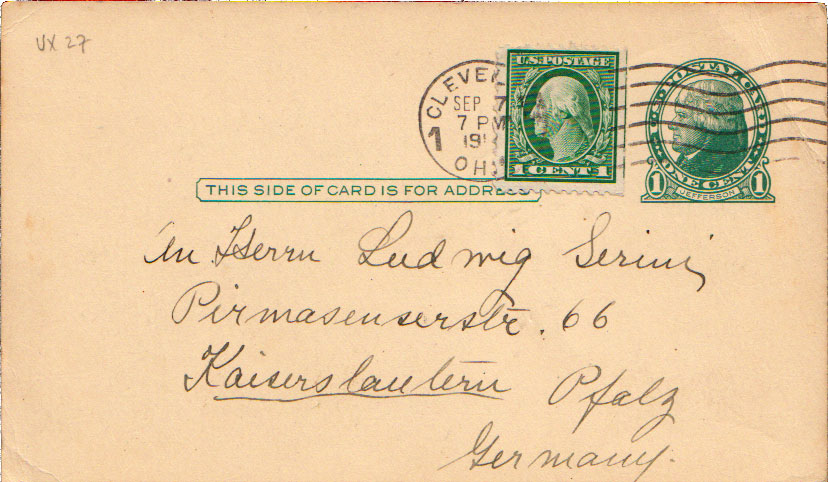 UX 27
CLEVEL
SEP 7
7 PM
191
OH
1
U.S. POSTAGE
1 CENT 1
U.S. POSTAL CARD
ONE CENT
1 JEFFERSON 1
THIS SIDE OF CARD IS FOR ADDRESS
An Herrn Ludwig Serini,
Pirmasenserstr. 66
Kaiserslautern Pfalz
Germany.